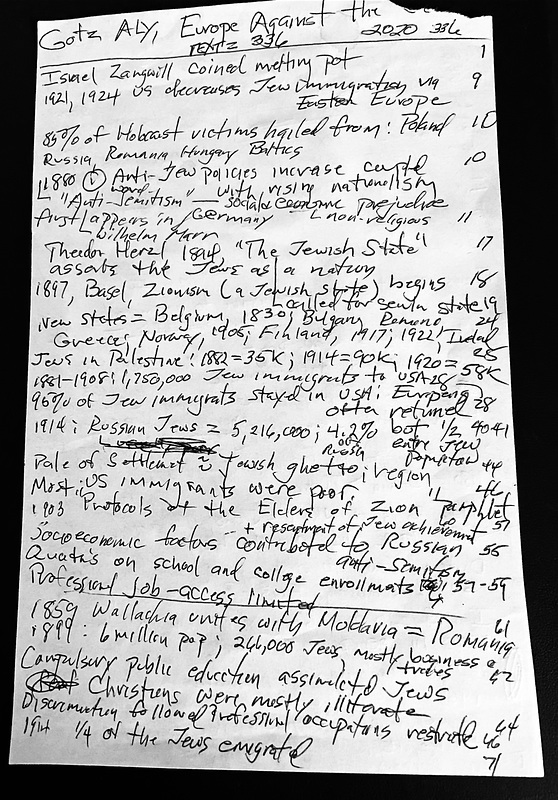 Gotz ALY, Europe Against the
TEXT = 336 2020 336
Israel Zangwill coined melting pot 1
1921, 1924 US decreases Jew immigration via 9
Eastern Europe
85% of Holocaust victims hailed from: Poland 10
Russia, Romania Hungary Baltics
1880 ① Anti-Jew policies increase 10
"Anti-Semitism" word with rising nationalism
social economic prejudice
first appears in Germany non-religious 11
Wilhelm Marr
Theodor Herzl 1896 "The Jewish State" 17
asserts the Jews as a nation
1897, Basel, Zionism (a Jewish state) begins 18
called for state 19
New states = Belgium, 1830; Bulgary Romania 24
Greece; Norway, 1905; Finland, 1917; 1922, Ireland
Jews in Palestine: 1882 = 35K; 1914 = 90K; 1920 = 58K 25
1881-1908: 1,750,000 Jew immigrants to USA 28
95% of Jew immigrats stayd in USA; Europeans
often returned 28
1914: Russian Jews = 5,216,000; 4.2% but 1/2 40 41
of Russia entire Jew
population
Pale of Settlement ≈ Jewish ghetto; region 44
Most US immigrants were poor 46
1903 Protocols of the Elders of Zion pamphlet
+ resentment of Jew achievement 51
Socioeconomic factors contributed to Russian 55
anti-Semitism
Quota's on school and college enrollments 57-59
Professional job-access limited
1859 Wallachia unites with Moldavia = Romania 61
1899: 6 million pop; 266,000 Jews mostly business &
trades 62
Compulsory public education assimilated Jews
Christians were mostly illiterate
Discrimination followed Professional occupations restricted 64
66
1914 1/4 of the Jews emigrated 71